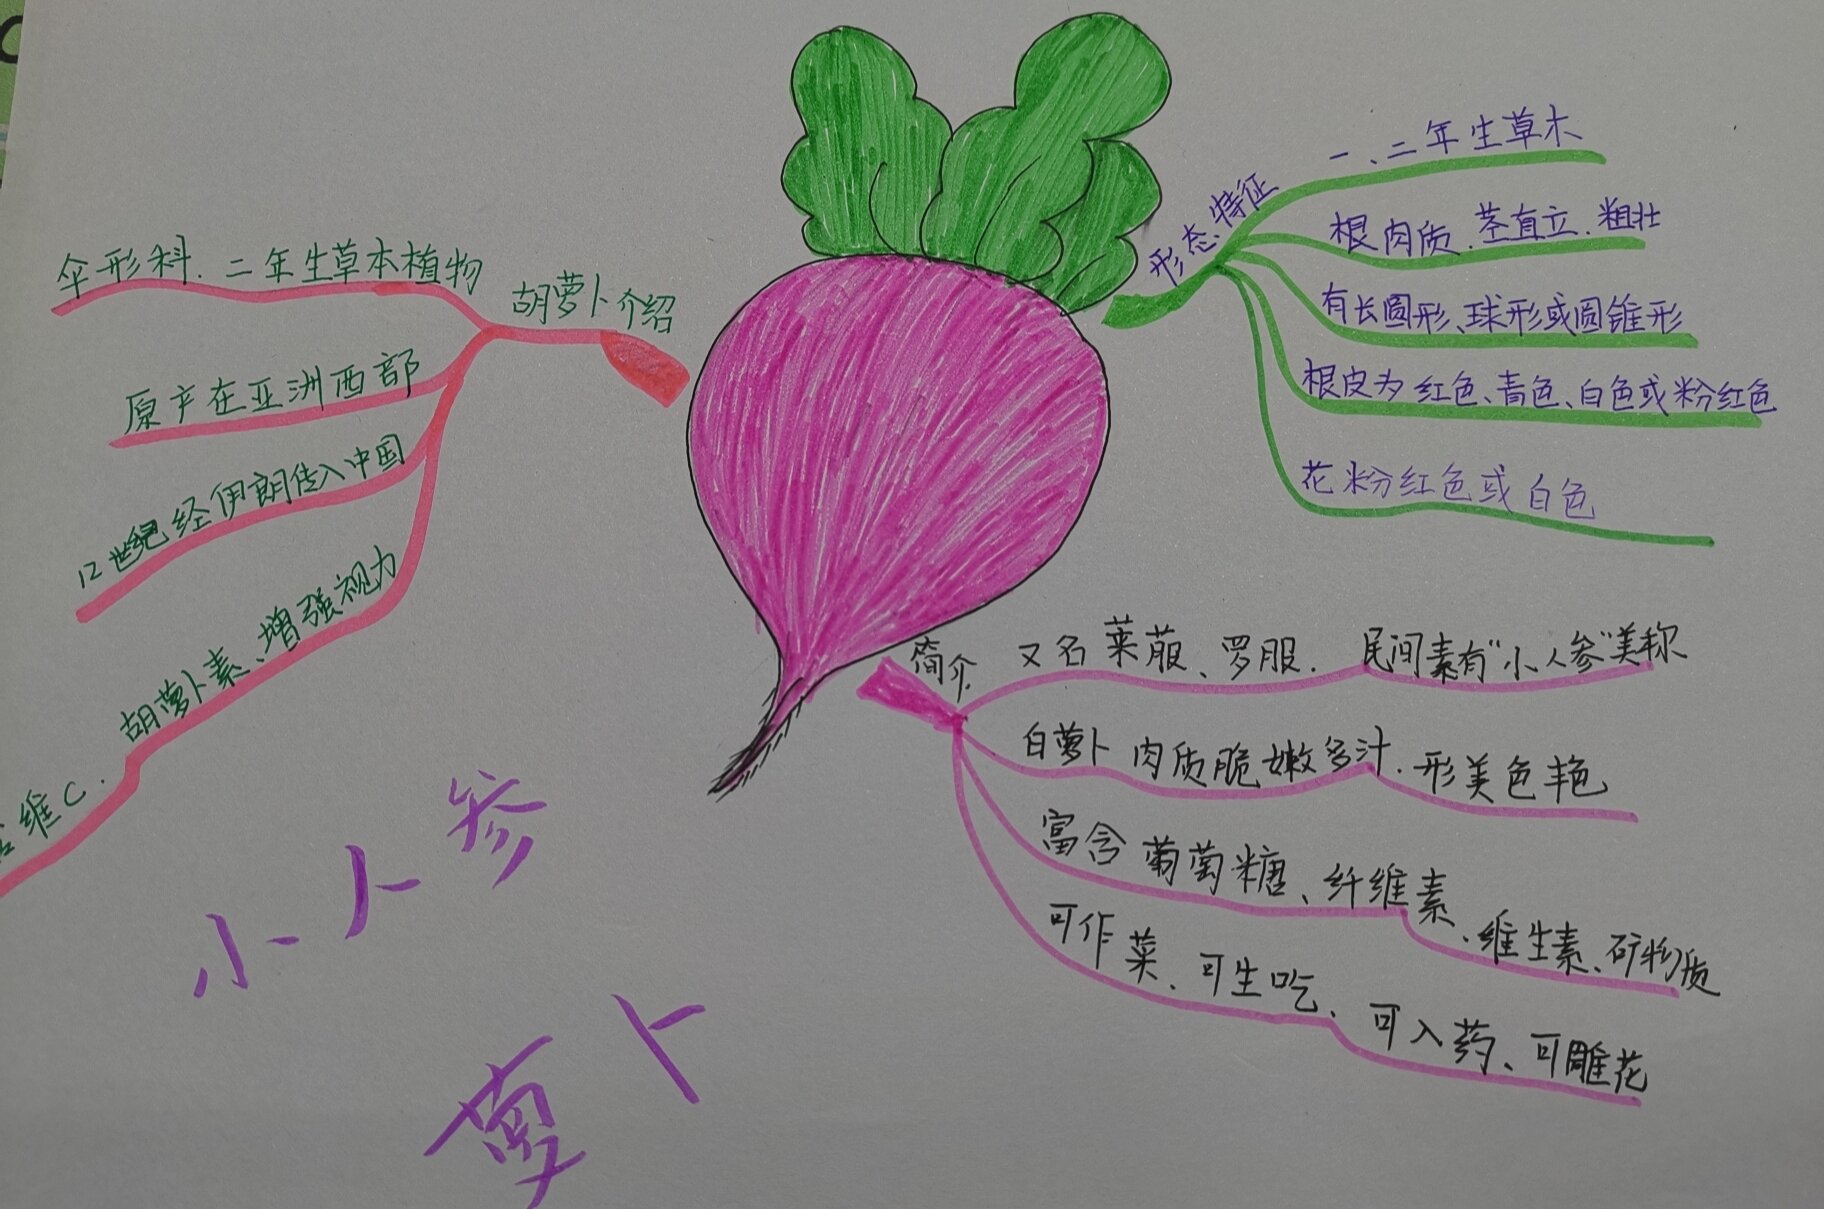 形态特征
一、二年生草木
根肉质.茎直立.粗壮
有长圆形、球形或圆锥形
根皮为红色、青色、白色或粉红色
花粉红色或白色
简介
又名莱菔、罗服.民间素有"小人参"美称
白萝卜肉质脆嫩多汁.形美色艳
富含葡萄糖、纤维素.维生素、矿物质
可作菜.可生吃.可入药、可雕花
胡萝卜介绍
伞形科.二年生草本植物
原产在亚洲西部
12世纪经伊朗传入中国
胡萝卜素、增强视力
维C.
小人参
萝卜